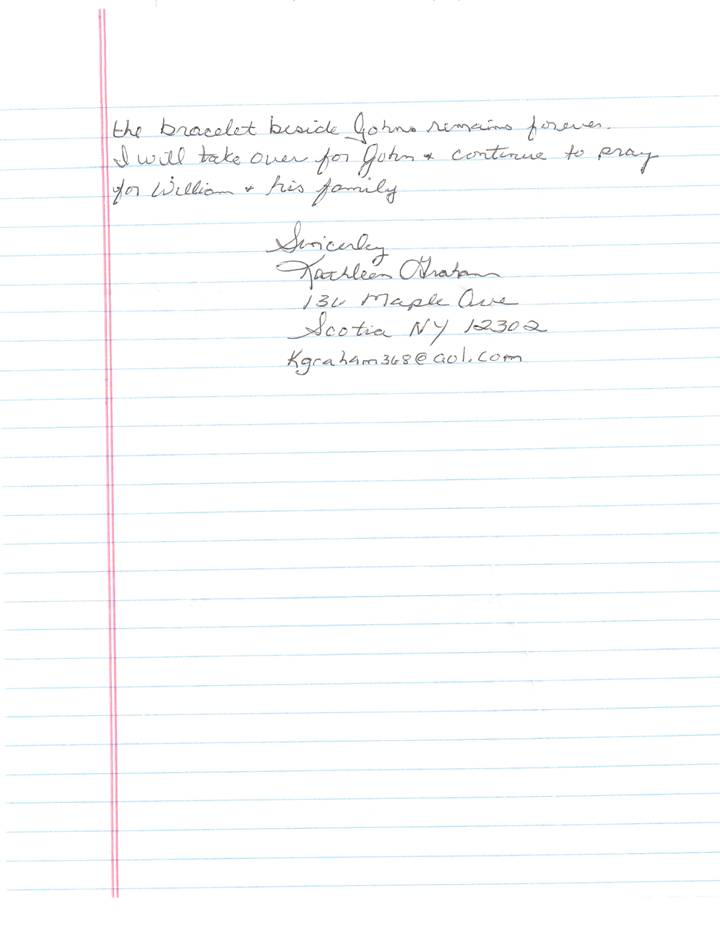 the bracelet beside Johns remains forever.
I will take over for John + continue to pray
for William + his family
Sincerley
Kathleen Graham
Maple Ave
Scotia NY 12302
Kgraham368@aol.com